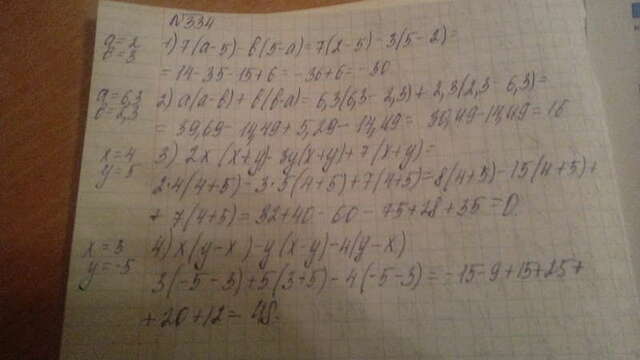 N334
a=2 1) 7(a-5)-b(5-a)=7(2-5)-3(5-2)=
b=3 =14-35-15+6=-36+6=30
a=6,3 2) a(a-b)+b(b-a)=6,3(6,3-2,3)+2,3(2,3-6,3)=
b=2,3 =39,69-14,49+5,29-14,49=39,49-14,49=16
x=4 3) 2x(x+y)-3y(x+y)+7(x+y)=
y=5 2·4(4+5)-3·5(4+5)+7(4+5)=8(4+5)-15(4+5)+
+7(4+5)=32+40-60-75+28+35=0
x=3 4) x(y-x)-y(x-y)-4(y-x)
y=-5 3(-5-3)+5(3+5)-4(-5-3)=-15-9+15+25+
+20+12=48